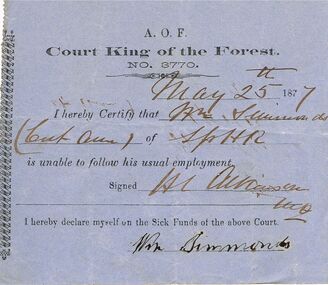 A. O. F.
Court King of the Forest.
NO. 3770.
May 25th 1877
I hereby Certify that Wm Simmonds
(Cut Arm) of
is unable to follow his usual employment.
Signed H L Atkinson
MD
I hereby declare myself on the Sick Funds of the above Court.
Wm Simmonds